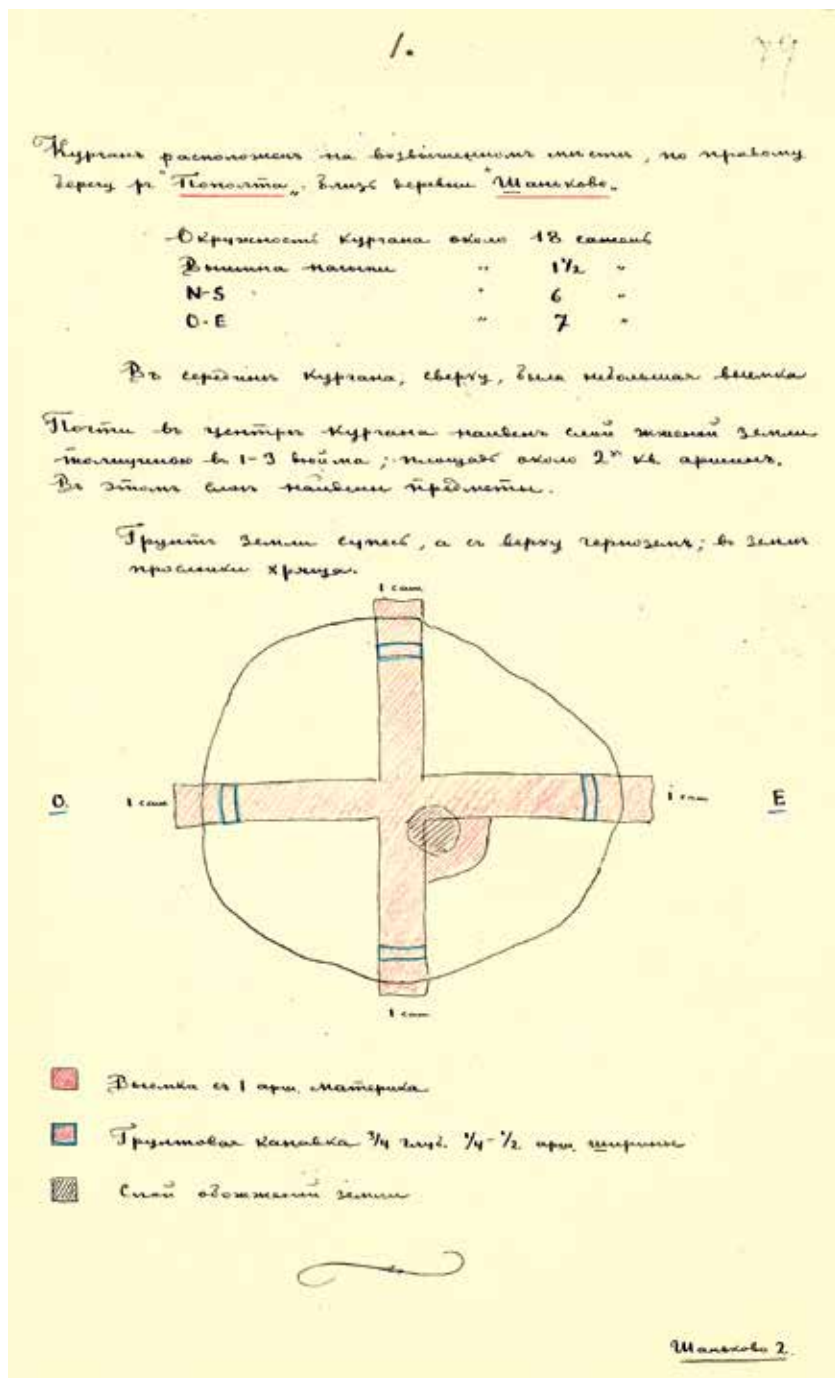 1.
79
Курганъ расположенъ на возвышенномъ мѣстѣ, по правому
берегу рѣ "Пополта„ близъ деревни "Шаньково„
Окружность кургана около 18 саженъ
Вышина насыпи " 1½ "
N-S " 6 "
O-E " 7 "
Въ серединѣ кургана, сверху, была небольшая выемка
Почти въ центрѣ кургана найденъ слой жженой земли
толщиною въ 1-3 вюйма; площадь около 2ˣ кв. аршинъ.
Въ этомъ слоѣ найдены предметы.
Грунтъ земли супесь, а съ верху черноземъ; въ землѣ
прослойки хряща.
1 саж
O. 1 саж 1 саж E
1 саж
Выемка съ 1 арш. материка
Грунтовая канавка ¾ глуб. ¼-½ арш. ширины
Слой обожженой земли
Шаньково 2.